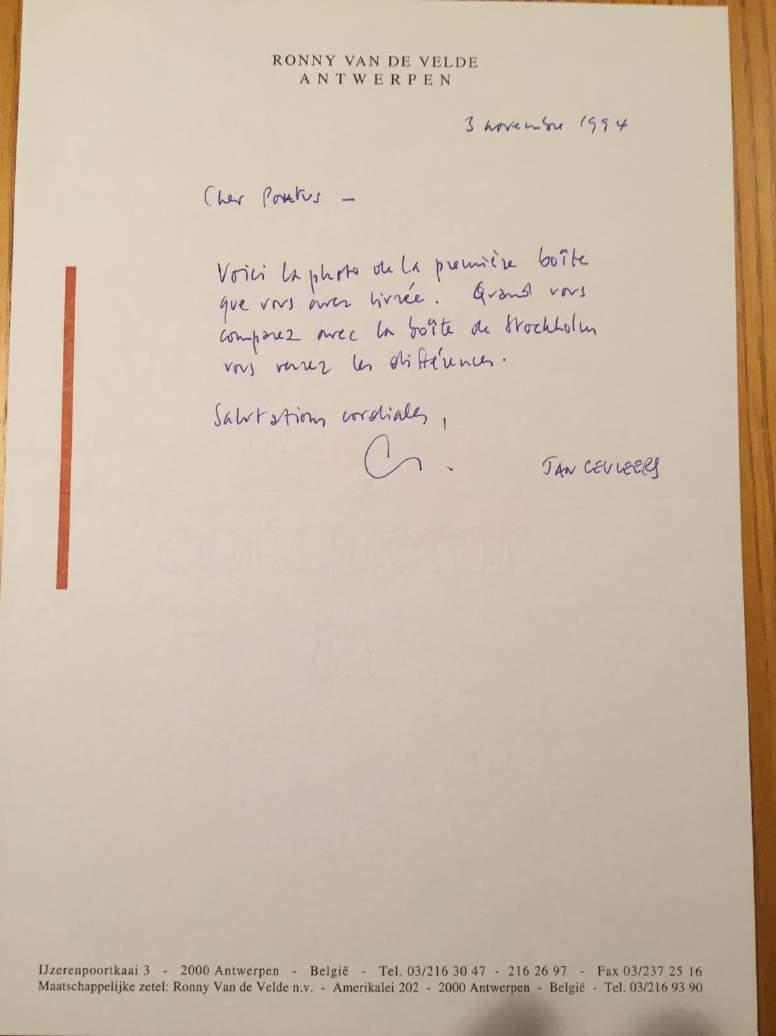 RONNY VAN DE VELDE
ANTWERPEN
3 novembre 1994
Cher Pontus –
Voici la photo de la première boîte
que vous avez livrée. Quand vous
comparez avec la boîte de Stockholm
vous verrez les différences.
Salutations cordiales,
JAN CEULEERS
IJzerenpoortkaai 3 - 2000 Antwerpen - België - Tel. 03/216 30 47 - 216 26 97 - Fax 03/237 25 16
Maatschappelijke zetel: Ronny Van de Velde n.v. - Amerikalei 202 - 2000 Antwerpen - België - Tel. 03/216 93 90